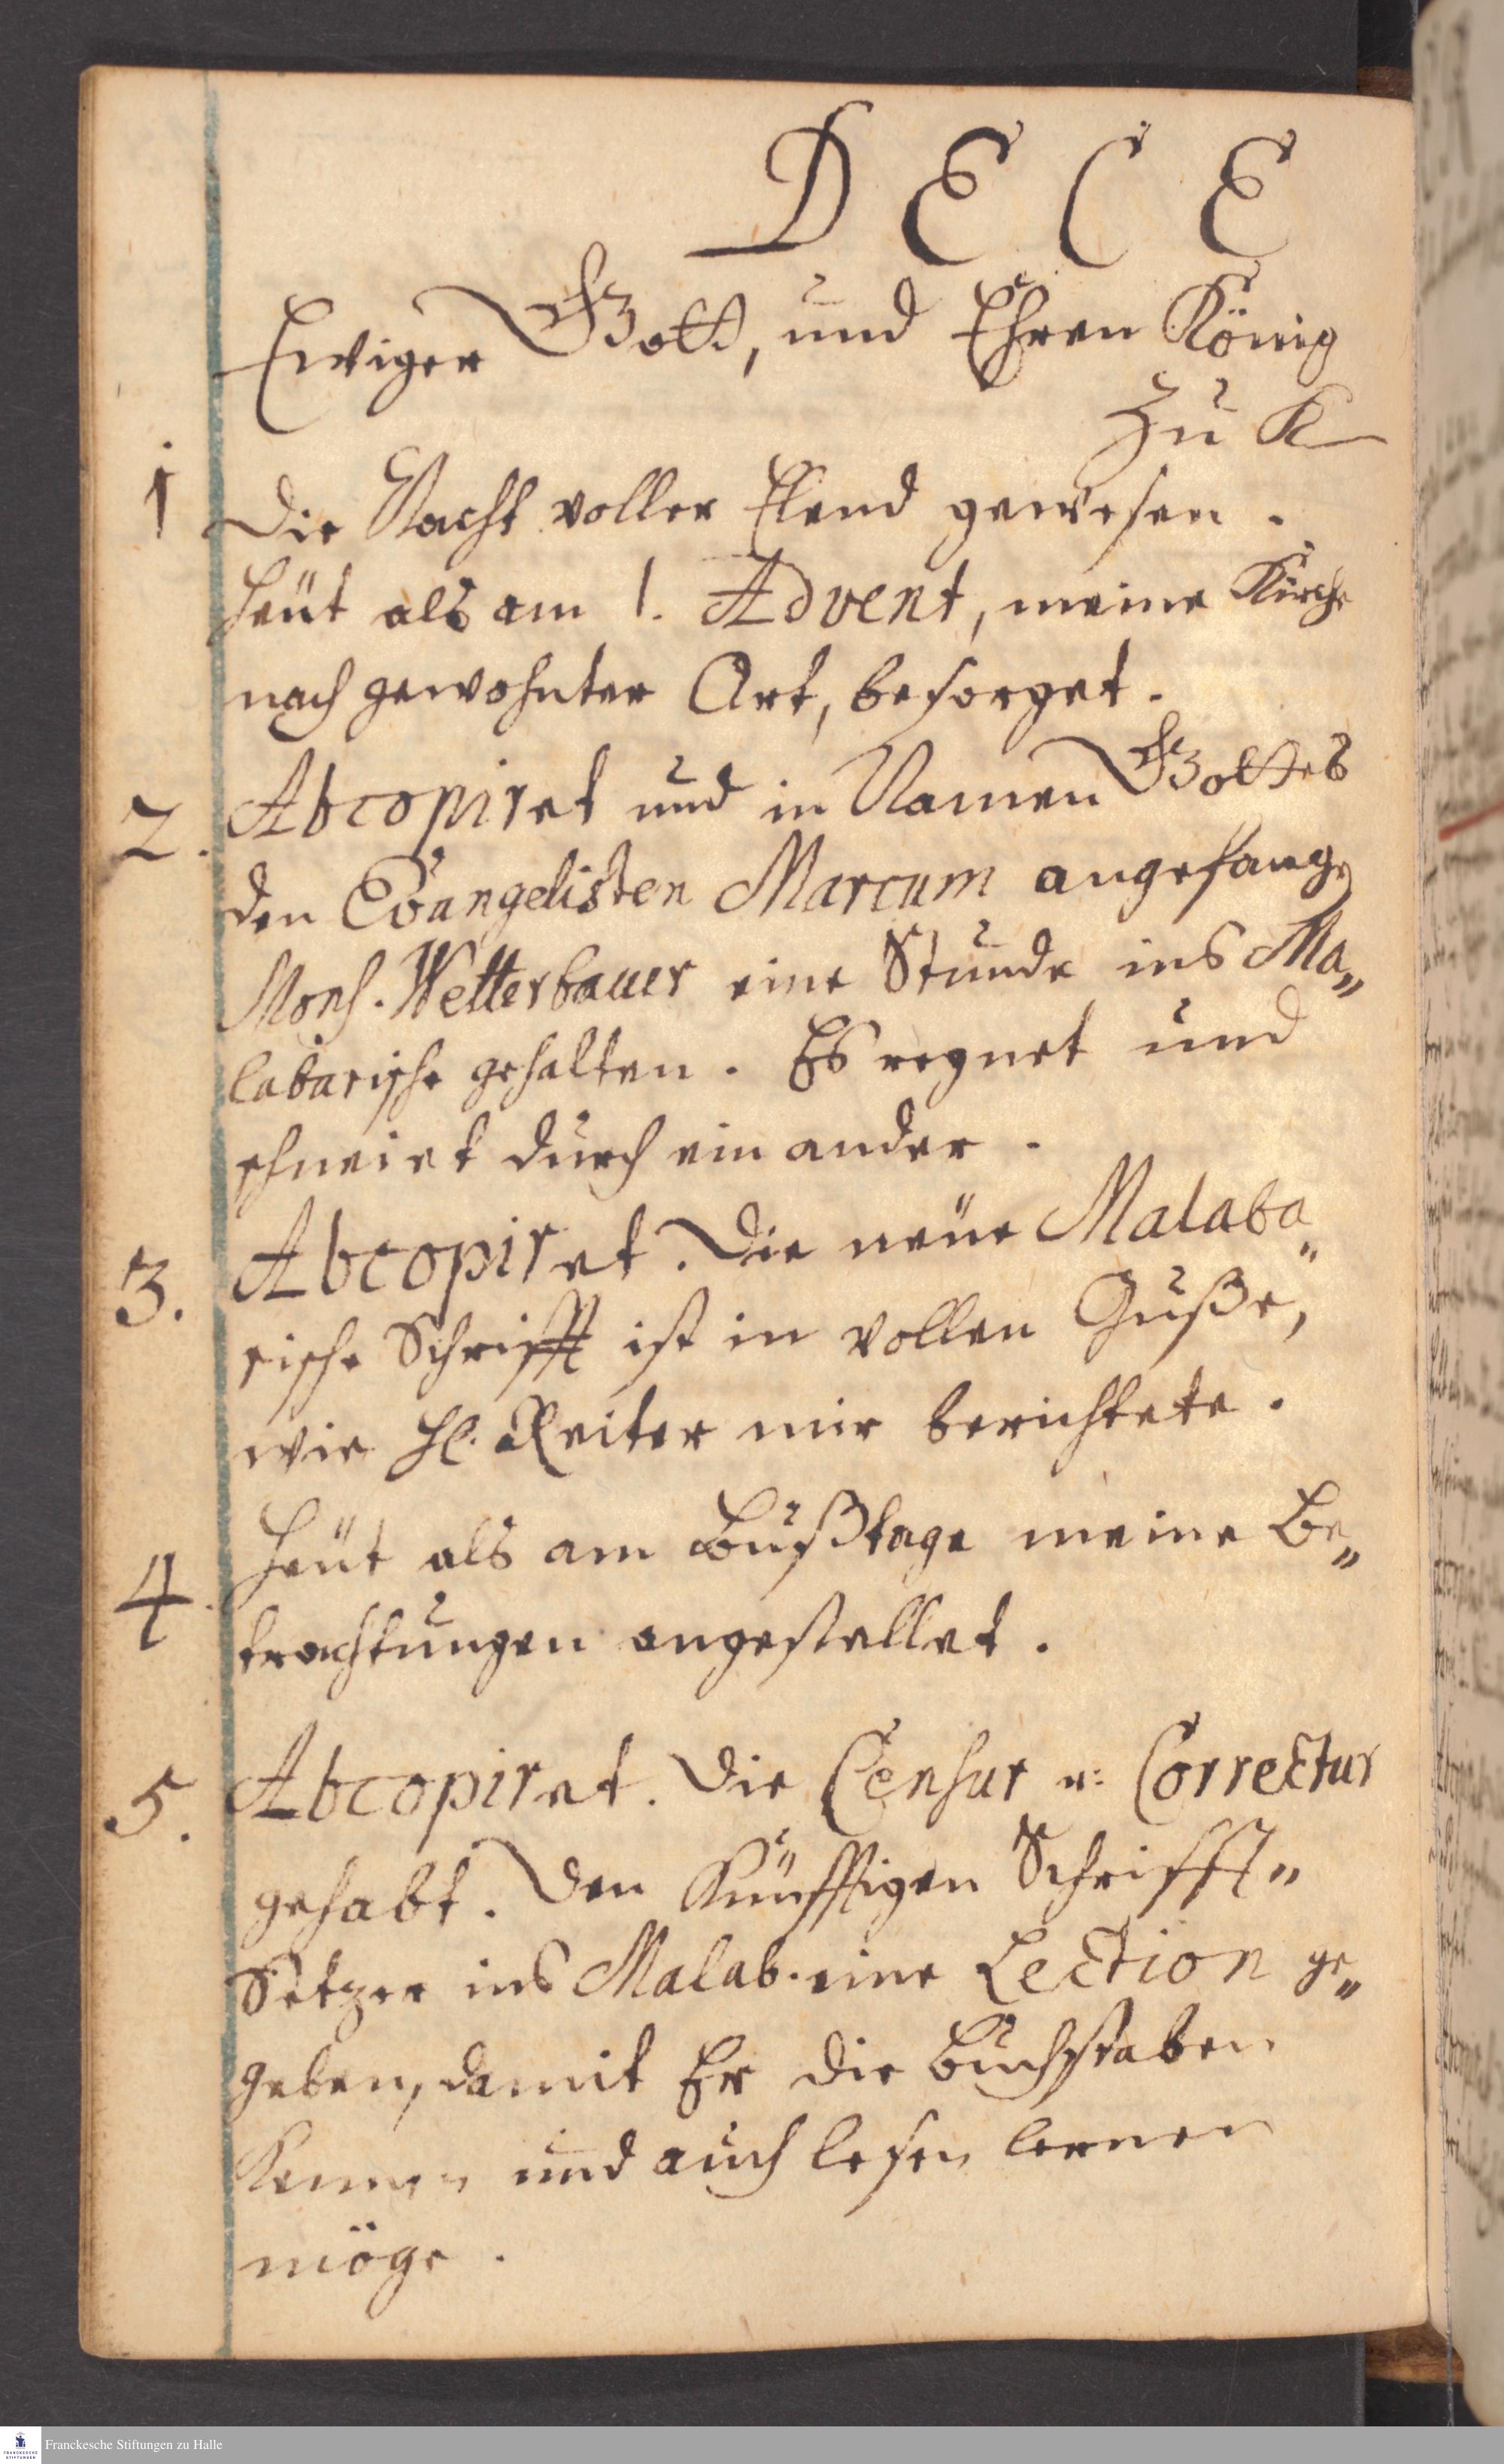 D E C E
Ewiger Gott, und Ehren König
Zu K
1 Die Nacht voller Elend gewesen.
Heüt als am 1. Advent, meine Kirche
nach gewohnter Art, besorget.
2. Abcopiret und in Namen Gottes
den Evangelisten Marcum angefangen
Mons. Wetterbauer eine Stunde ins Ma„
labarische gehalten. Es regnet und
schneiet durch ein ander.
3. Abcopiret. Die neüe Malaba„
rische Schrifft ist in vollen Guße,
wie H. Reiter mir berichtete.
4. Heüt als am Bußtage meine Be„
trachtungen angestellet.
5. Abcopiret. Die Censur u: Correctur
gehabt. Den Künfftigen Schrifft„
Setzer ins Malab. eine Lection ge„
geben, damit Er die Buchstaben
Kennen und auch lesen lernen
möge.
Franckesche Stiftungen zu Halle